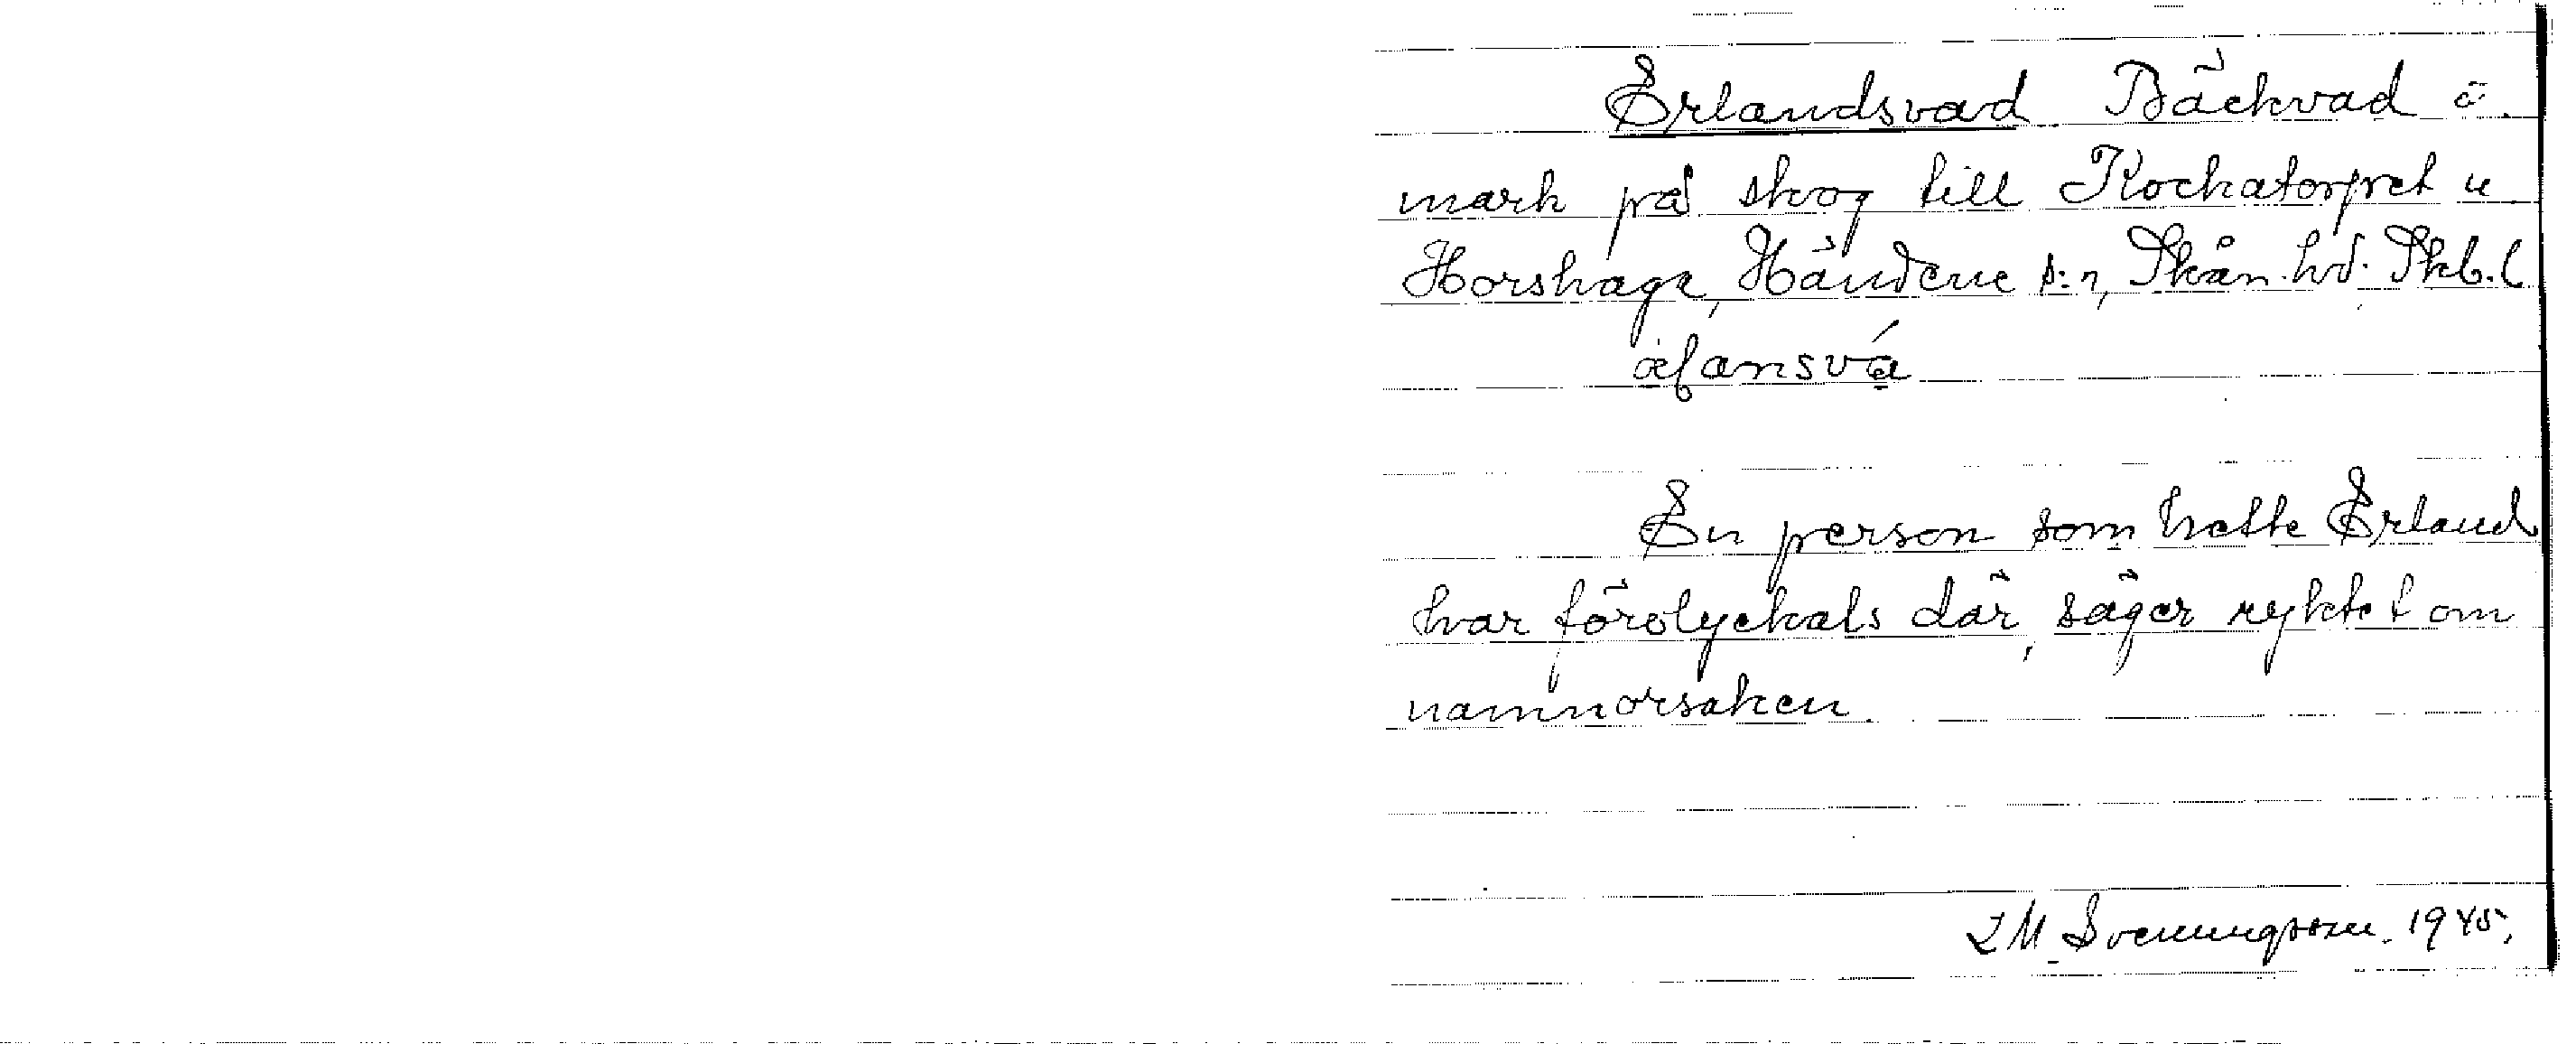 Erlandsvad. Bäckvad ä.
mark på skog till Kockatorpret u
Horshaga, Händene s:n, Skån. hd. Skb. l
æɭansvá̱
En person som hette Erland
har förolyckats där, säger ryktet om
namnorsaken.
L M Svenungsson. 1945.